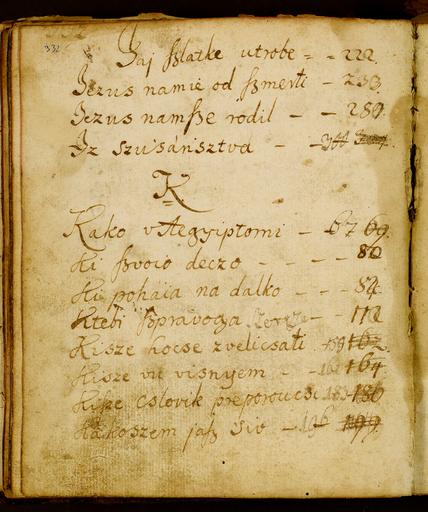 332
Jaj ßlatke utrobe - - 222
Jezus namie od ßmerti - 253
Jezus namße rodil - - 289
Iz szusánsztva - -
K
Kako vAegyiptomi - 67 69
Ki ßvoio deczo - - - - 80
Ki pohaia na dalko - - - 84
Ktebi ßpravocza - - 112
Kisze hocse zvelicsati 159 162
Kisze vu visnyem - - 161 164
Kiße cslovik preporoucsi 183 186
Kakoszem jaß siv - 196 199